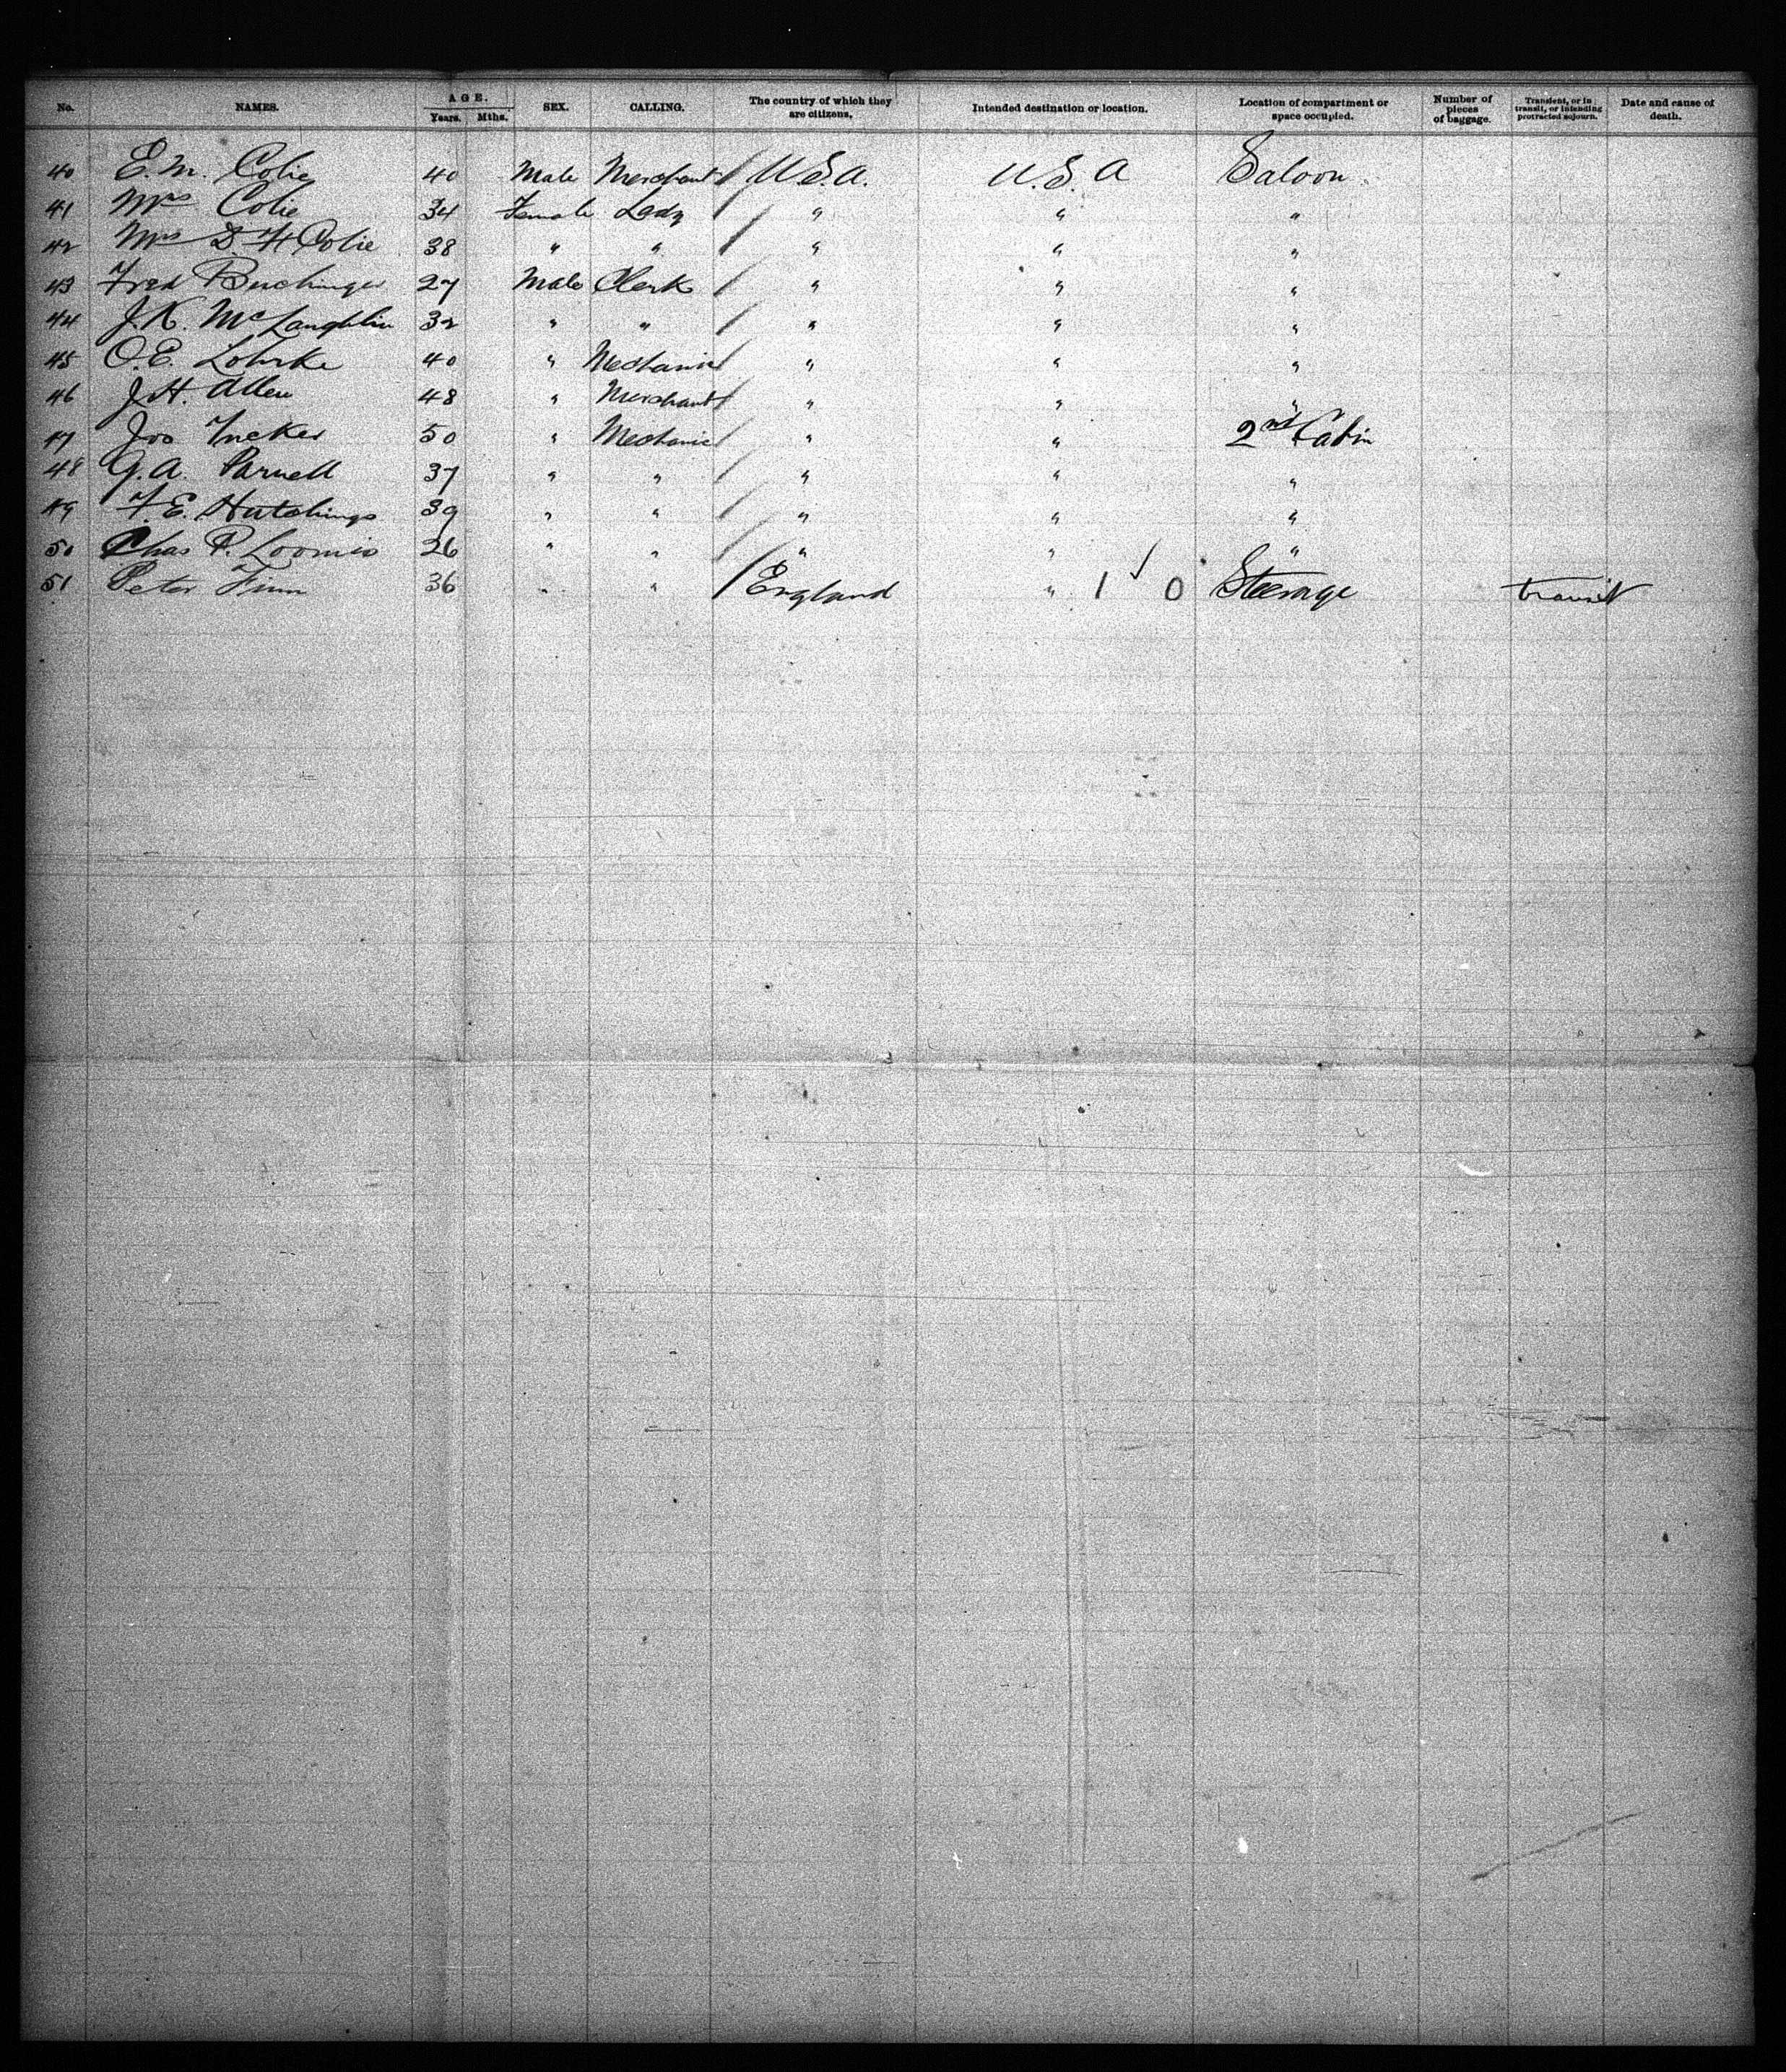 No. NAMES. AGE. Years. Mths. SEX. CALLING. The country of which they are citizens. Intended destination or location. Location of compartment or space occupied. Number of pieces of baggage. Transient, or in transit, or intending protracted sojourn. Date and cause of death.
40 E. M. Colie 40 Male Merchant U.S.A. U.S.A Saloon
41 Mrs Colie 34 Female Lady " " "
42 Mrs D H Colie 38 " " " " "
43 Fred Buchinger 27 Male Clerk " " "
44 J. K. McLaughlin 32 " " " " "
45 O. E. Lohrke 40 " Mechanic " " "
46 J. H. Allen 48 " Merchant " " "
47 Jos Tucker 50 " Mechanic " " 2nd Cabin
48 G. A. Parnell 37 " " " " "
49 F. E. Hutchings 39 " " " " "
50 Chas P. Loomis 26 " " " " "
51 Peter Finn 36 " " England " 1 0 Steerage transit